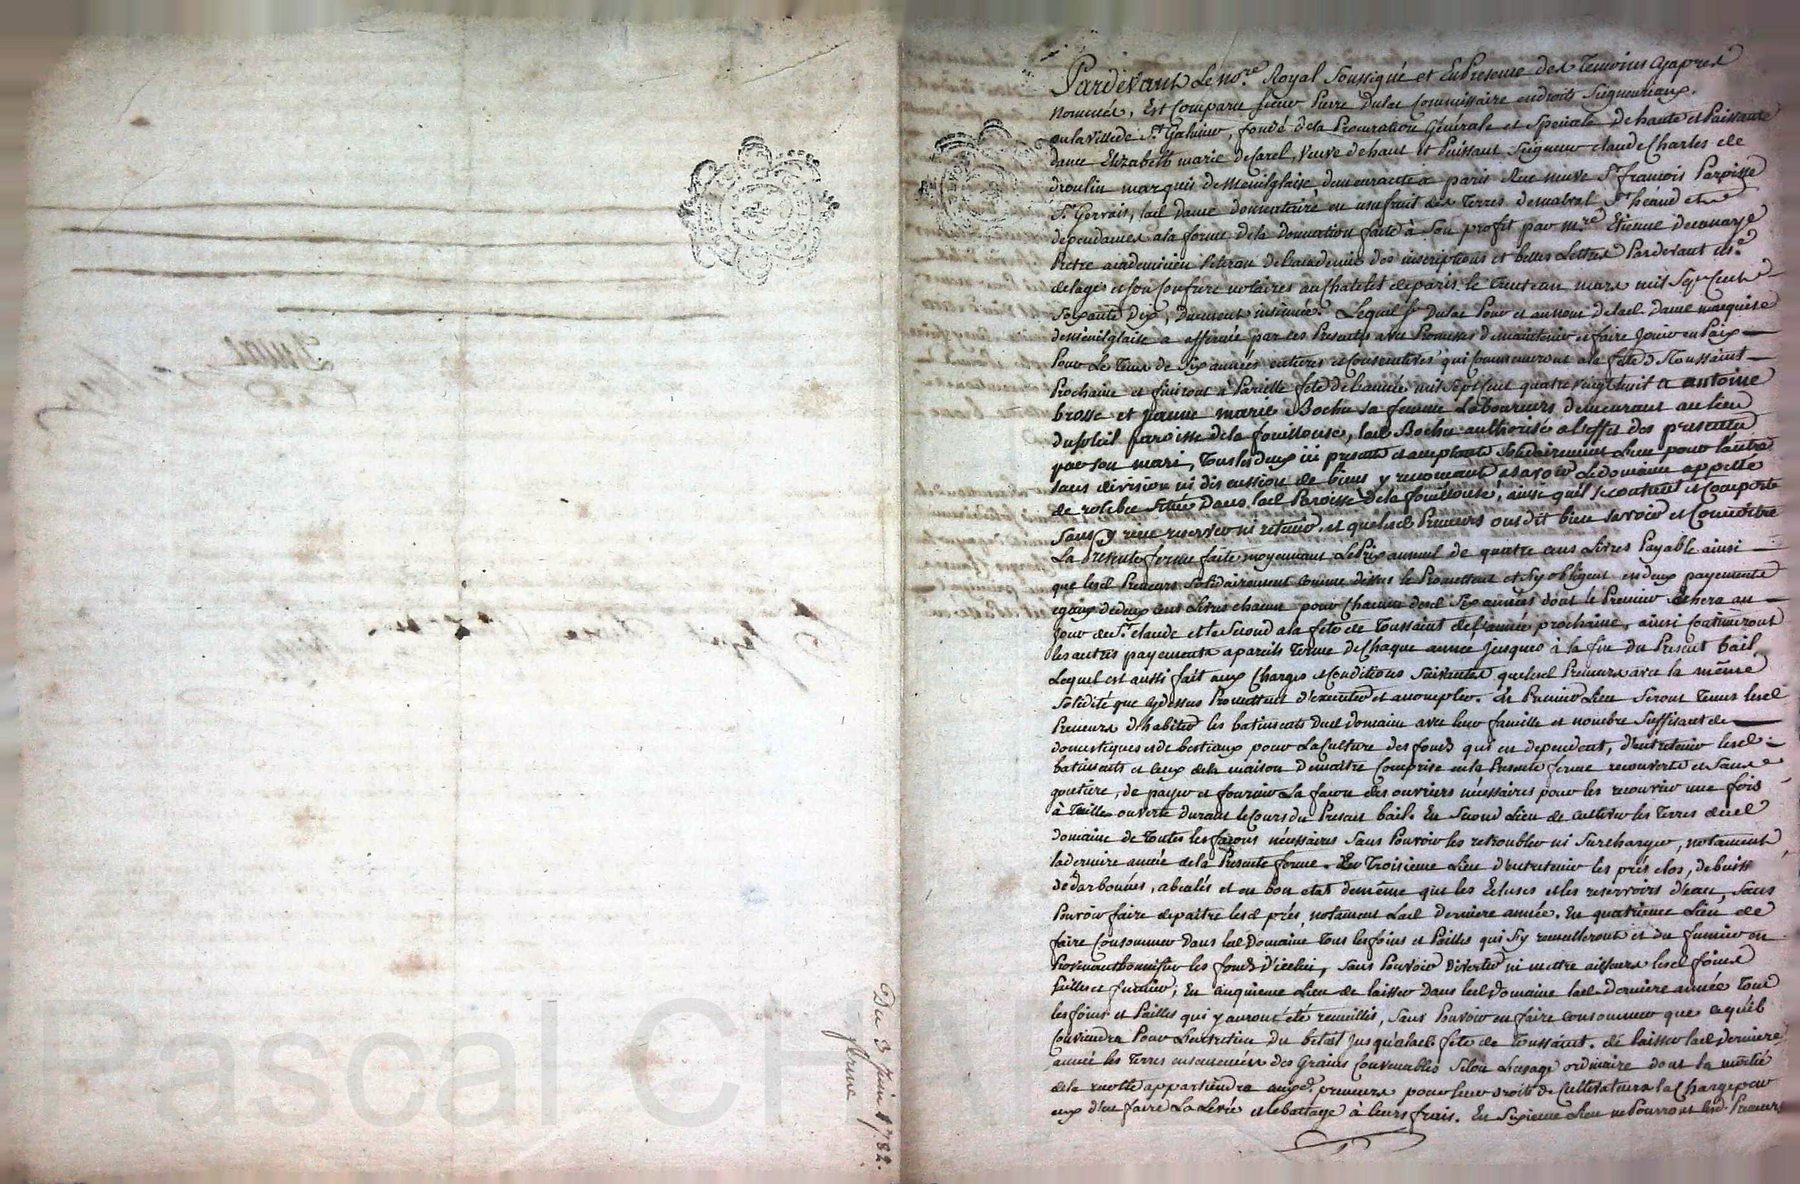 Du 3 Juin 1782.
ferme
Pardevant Le no.re Royal Soussigné et En Presence des Temoins Cyapres
nommés, Est Comparu sieur Pierre Dulac Commissaire en droits Seigneuriaux.
en la Ville de S.t Galmier, fondé de la Procuration Générale et Speciale de haute et Puissante
dame Elizabeth marie de Carel, Veuve de haut et Puissant Seigneur Claude Charles de
droulin marquis de Menilglaise, demeurante a paris Rue neuve S.t françois Paroisse
S.t Gervais, lad. Dame donnataire en usufruit des Terres de S.t héand et
dependances a la forme de la donnation faite à Son profit par M.re Etienne de
Pretre academicien veteran de l'academie des inscriptions et belles Lettres Pardevant M.e
delage et son Confrere notaires au Chatelet de paris le Trente un mars mil Sept Cent
Soixante Dix, duement insinuée. Lequel S.r Dulac Pour et au nom de lad. dame marquise
de ménilglaise a affermé par ces Presentes avec Promesses de maintenir et faire Jouir en Paix
Pour Le Tems de Six années entieres et Consecutives qui Commenceront a la fête de Toussaint
Prochaine et finiront à Pareille fête de l'année mil sept cent quatre vingt huit a antoine
brosse et jeanne marie Bochu sa femme Laboureurs demeurant au lieu
du soleil paroisse de la fouillouse, lad. Bochu authorisée a l'effet des presentes
par son mari, Tous les deux ici presents et acceptants solidairement L'un pour l'autre
sans division ni discussion de biens y renonçant asavoir Le domaine appellé
de Situé Dans lad. Paroisse de la fouillouse, ainsi qu'il se contient et Comporte
Sans y rien reserver ni retenir, et que lesd. Preneurs ont dit bien savoir et Connoitre
La Presente ferme faite moyennant Le Prix annuel de quatre cens Livres Payable ainsi
que lesd. Preneurs Solidairement comme dessus le Promettent et S'y obligent en deux payements
egaux de deux cens Livres chacun pour Chacune desd. Six années dont le Premier Echera au
jour de S.t claude et le Second a la fête de Toussaint de l'année prochaine, ainsi Continueront
les autres payements a pareils terme de Chaque année Jusques à la fin du Present bail,
Lequel est aussi fait aux Charges et Conditions Suivantes que lesd. Preneurs avec la même
Solidité que cydessus Promettent d'executer et accomplir. En Premier Lieu Seront Tenus lesd.
Preneurs d'habiter les batiments dud. domaine avec leur famille et nombre Suffisant de
domestiques et de bestiaux pour La Culture des fonds qui en dependent, d'entretenir lesd.
batiments et ceux de la maison de maitre Comprise en la Presente ferme recouverts et Sans
goutiere, de payer et fournir La façon des ouvriers nécessaires pour les recouvrir une fois
à Tuille ouverte durant le Cours du Present bail. En Second Lieu de cultiver les Terres dud.
domaine de Toutes les façons nécessaires Sans Pouvoir les retroubler ni Surcharger, notament
la derniere année de la Presente ferme. En Troisieme Lieu d'entretenir les prés clos, de buiss
de darbounées, abealés et en bon etat de même que les Ecluses et les reservoirs d'eau, Sans
Pouvoir faire depaitre lesd. prés notament Lad. Derniere année. En quatrieme Lieu de
faire Consommer Dans led. Domaine Tous les foins et Pailles qui S'y recueilleront et du fumier en
Provenant bonnifier les fonds d'icelui, Sans Pouvoir Divertir ni mettre ailleurs lesd. foins
Pailles et fumier; En Cinquieme Lieu de laisser Dans led. Domaine lad. Derniere année Tous
les foins et Pailles qui y auront eté recueillis, Sans Pouvoir en faire consommer que ce qu'il
Conviendra Pour L'entretien du betail Jusqu'alad. fête de Toussaint. de laisser lad. derniere
année les Terres ensemencées des Grains Convenables Selon L'usage ordinaire dont la moitié
de la recolte appartiendra auxd. preneurs pour leur droit de Cultivateurs a la Charge par
eux d'en faire La Levée et le battage à leurs frais. En Sixieme Lieu ne Pourront lesd. Preneurs
Pascal CH